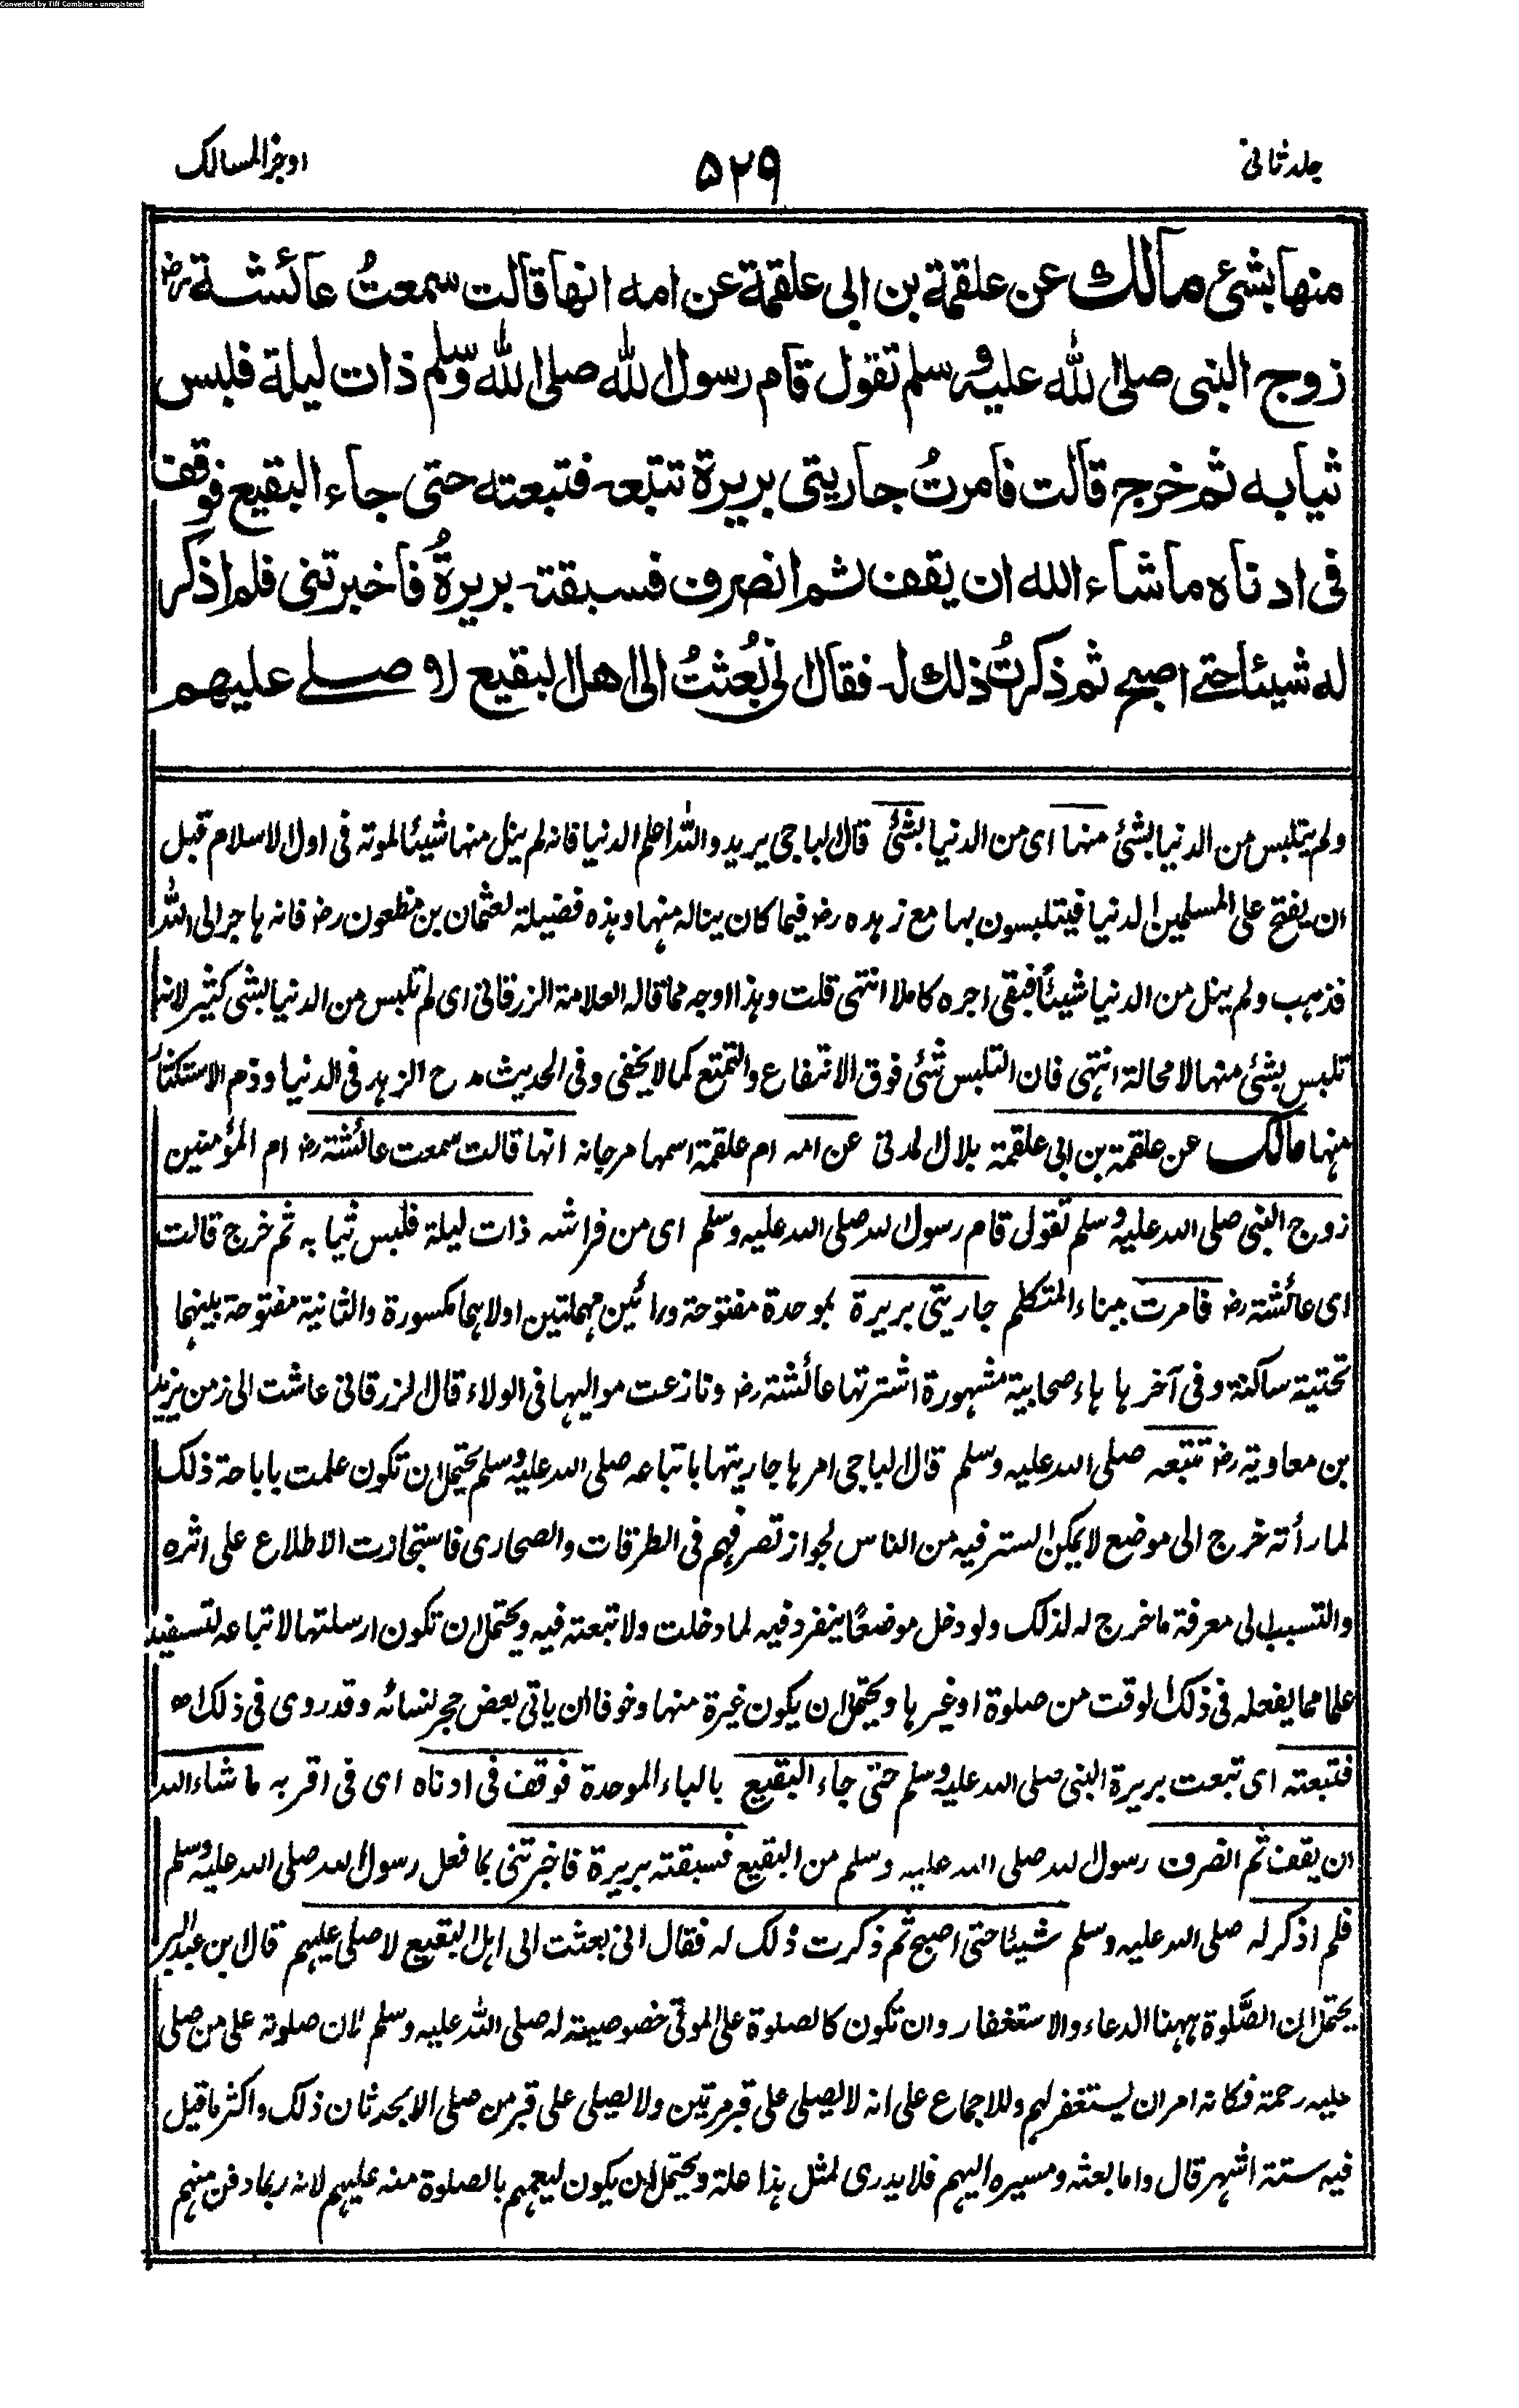 Converted by Tiff Combine - unregistered
جلد ثانی
۵۲۹
اوجز المسالک
منها بشئ مالك عن علقمة بن ابی علقمة عن امه انها قالت سمعتُ عائشة رض
زوج النبی صلی الله علیه وسلم تقول قام رسول الله صلی الله وسلم ذات لیلة فلبس
ثیابه ثم خرج قالت فامرتُ جاریتی بریرة تتبعه فتبعته حتی جاء البقیع فوقف
فی ادناه ماشاء الله ان یقف ثم انصرف فسبقته بریرةُ فاخبرتنی فلم اذکر
له شیئا حتے اصبح ثم ذکرتُ ذلك له فقال انی بُعثتُ الی اهل البقیع لاصلے علیهم
ولم یتلبس من الدنیا بشئ منہا ای من الدنیا بشئ قال الباجی یرید واللہ اعلم الدنیا فانہ لم ینل منہا شیئا لموتہ فی اول الاسلام قبل
ان یفتح علی المسلمین الدنیا فیتلبسون بہا مع زہدہ رض فیما کان ینالہ منہا وہذہ فضیلة لعثمان بن مظعون رض فانہ ہاجر الی اللہ
فذہب ولم ینل من الدنیا شیئاً فبقی اجرہ کاملا انتہی قلت وہذا اوجہ مما قالہ العلامة الزرقانی ای لم تلبس من الدنیا بشئ کثیر لانہ
تلبس بشئ منہا لا محالة انتہی فان التلبس شئ فوق الانتفاع والتمتع کما لا یخفی وفی الحدیث مدح الزہد فی الدنیا وذم الاستکثار
منہا مالک عن علقمة بن ابی علقمة بلال المدنی عن امہ ام علقمة اسمہا مرجانہ انہا قالت سمعت عائشة رض ام المؤمنین
زوج النبی صلی اللہ علیہ وسلم تقول قام رسول اللہ صلی اللہ علیہ وسلم ای من فراشہ ذات لیلة فلبس ثیابہ ثم خرج قالت
ای عائشة رض فامرت ببناء المتکلم جاریتی بریرة بموحدة مفتوحة ورائین مہملتین اولاہما مکسورة والثانیة مفتوحة بینہما
تحتیة ساکنة وفی آخرہا ہاء صحابیة مشہورة اشترتہا عائشة رض ونازعت موالیہا فی الولاء قال الزرقانی عاشت الی زمن یزید
بن معاویة رض تتبعہ صلی اللہ علیہ وسلم قال الباجی امرہا جاریتہا باتباعہ صلی اللہ علیہ وسلم یحتمل ان تکون علمت باباحة ذلک
لما رأتہ خرج الی موضع لا یمکن الستر فیہ من الناس لجواز تصرفہم فی الطرقات والصحاری فاستجازت الاطلاع علی اثرہ
والتسبب الی معرفة ما خرج لہ لذلک ولو دخل موضعاً ینفرد فیہ لما دخلت ولا تبعتہ فیہ ویحتمل ان تکون ارسلتہا لاتباعہ لتستفید
علما مما یفعلہ فی ذلک الوقت من صلوة او غیرہا ویحتمل ان یکون غیرة منہا وخوفا ان یاتی بعض حجر نسائہ وقد روی فی ذلک اھ
فتبعتہ ای تبعت بریرة النبی صلی اللہ علیہ وسلم حتی جاء البقیع بالباء الموحدة فوقف فی ادناہ ای فی اقربہ ما شاء اللہ
ان یقف ثم انصرف رسول اللہ صلی اللہ علیہ وسلم من البقیع فسبقتہ بریرة فاخبرتنی بما فعل رسول اللہ صلی اللہ علیہ وسلم
فلم اذکر لہ صلی اللہ علیہ وسلم شیئا حتی اصبح ثم ذکرت ذلک لہ فقال انی بعثت الی اہل البقیع لاصلی علیہم قال ابن عبد البر
یحتمل ان الصّلوة ہہنا الدعاء والاستغفار وان تکون کالصلوة علی الموتی خصوصیة لہ صلی اللہ علیہ وسلم لان صلوتہ علی من صلی
علیہ رحمة فکانہ امر ان یستغفر لہم وللاجماع علی انہ لا یصلی علی قبر مرتین ولا یصلی علی قبر من صلی الا بحدثان ذلک واکثر ما قیل
فیہ ستة اشہر قال واما بعثہ ومسیرہ الیہم فلا یدری لمثل ہذا علة ویحتمل ان یکون لیعمہم بالصلوة منہ علیہم لانہ ربما دفن منہم